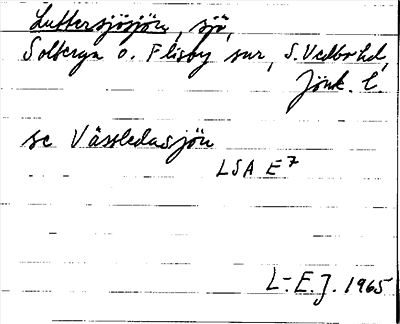 Luttersjösjön, sjö,
Solberga o. Flisby snr, S. Vedbo hd,
Jönk. l.
se Vässledasjön
LSA E7
L-E.J. 1965